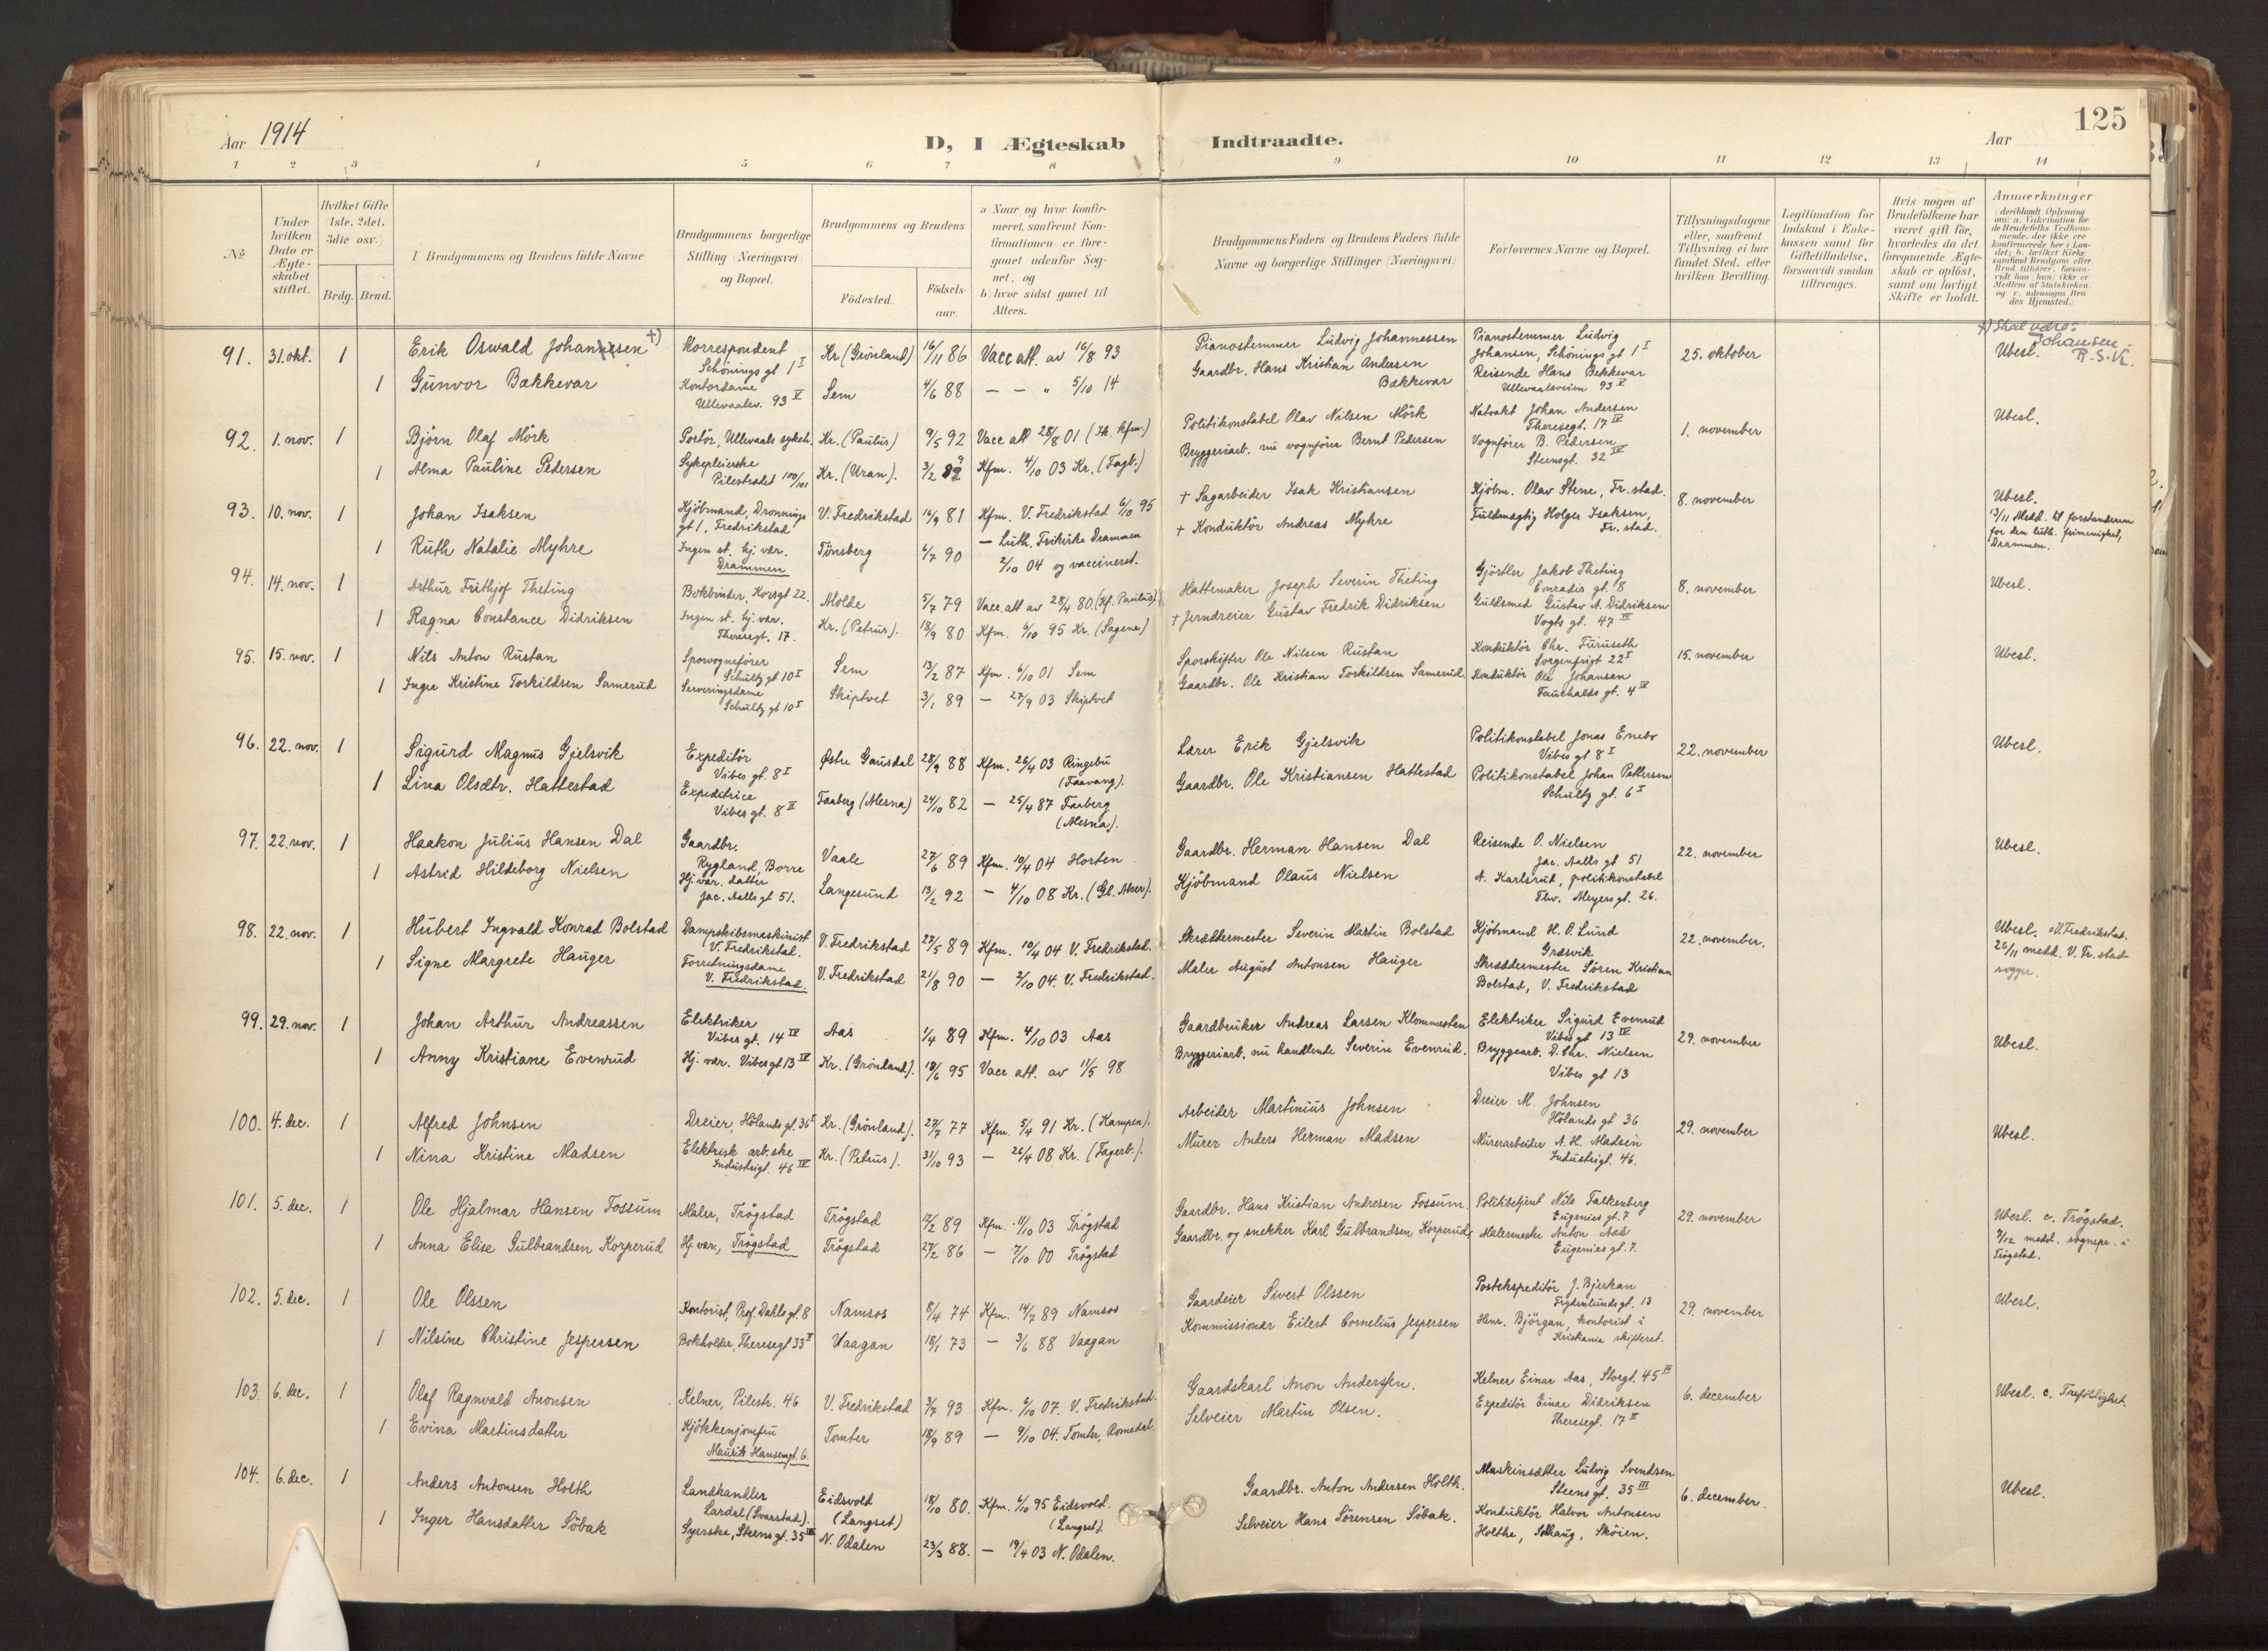 Aar 1914
D, I Ægteskab Indtraadte.
Aar
125
1 2 3 4 5 6 7 8 9 10 11 12 13 14
No
Under hvilken Dato er Ægteskabet stiftet.
Hvilket Gifte (1ste, 2det, 3die osv.)
Brdg. Brud.
1 Brudgommens og Brudens fulde Navne
Brudgommens borgerlige Stilling (Næringsvei) og Bopæl.
Brudgommens og Brudens
Födested.
Födselsaar.
a) Naar og hvor konfirmeret, saafremt Konfirmationen er foregaaet udenfor Sognet, og
b) hvor sidst gaaet til Alters.
Brudgommens Faders og Brudens Faders fulde Navne og borgerlige Stillinger (Næringsvei)
Forlovernes Navne og Bopæl.
Tillysningsdagene eller, saafremt Tillysning ei har fundet Sted, efter hvilken Bevilling.
Legitimation for Indskud i Enkekassen samt for Giftetilladelse, forsaavidt saadan tiltrænges.
Hvis nogen af Brudefolkene har været gift för, hvorledes da det foregaaende Ægteskab er oplöst, samt om lovligt Skifte er holdt.
Anmærkninger (deriblandt Oplysning om: a. Vakcination for de Brudefolks Vedkommende, der ikke ere konfirmerede her i Landet; b. hvilket Kirkesamfund Brudgom eller Brud tilhörer, forsaavidt han (hun) ikke er Medlem af Statskirken, og c. udensogns Brudes Hjemsted.)
91. 31. okt. 1 Erik Oswald Johannesen +) Korrespondent Schönings gt 1 I Kr (Grönland) 16/11 86 Vacc att. av 16/8 93 Pianostemmer Ludvig Johannessen Pianostemmer Ludvig Johansen, Schönings gt 1 I 25. oktober Ubesl.
+) Skal være: Johansen. R.S.K.
1 Gunvor Bakkevar Kontordame Ullevaalsv. 93 V Sem 4/6 88 — — " 5/10 14 Gaardbr. Hans Kristian Andersen Bakkevar Reisende Hans Bekkevar Ullevaalsveien 93 V
92. 1. nov. 1 Björn Olaf Mörk Portör, Ullevaals sykeh. Kr. (Paulus) 9/5 92 Vacc att 28/8 01 Politikonstabel Olav Nilsen Mörk Natvakt Johan Andersen Theresegt. 17 IV 1. november Ubesl.
1 Alma Pauline Pedersen Sykepleierske Pilestrædet 100/101 Kr. (Uran). 3/2 89 Kfm. 4/10 03 Kr. (Fagb.) Bryggeriarb. nu vognförer Bernt Pedersen Vognförer B. Pedersen Steensgt. 32 IV
93. 10. nov. 1 Johan Isaksen Kjöbmand, Dronningsgt 1, Fredrikstad V. Fredrikstad 16/9 81 Kfm. V. Fredrikstad 6/10 95 + Sagarbeider Isak Kristiansen Kjöbm. Olav Stene, Fr.stad. 8. november Ubesl.
1 Ruth Natalie Myhre Ingen st. hj. vær. Drammen Tönsberg 6/7 90 — Luth. Frikirke Drammen 2/10 04 og vaccineret. + Konduktör Andreas Myhre Fuldmægtig Holger Isaksen, Fr. stad. 13/11 Medd. til forstanderen for den luth. frimenighet, Drammen.
94. 14. nov. 1 Arthur Frithjof Theting Bokbinder, Korsgt 22. Molde 5/7 79 Vacc. att av 28/4 80. (Kf. Paulus) Hattemaker Joseph Severin Theting Gjörtler Jakob Theting Conradis gt. 8 8. november Ubesl.
1 Ragna Constance Didriksen Ingen st. hj. vær. Theresegt. 17. Kr. (Petrus). 18/9 80 Kfm. 6/10 95 Kr. (Sagene) + Jerndreier Gustav Fredrik Didriksen Guldsmed Gustav A. Didriksen Vogts gt. 47 III
95. 15. nov. 1 Nils Anton Rustan Sporvognsförer Schultz gt 10 I Sem 13/2 87 Kfm. 6/10 01 Sem Sporskifter Ole Nilsen Rustan Konduktör Chr. Furuseth Sorgenfrigt 22 I 15. november Ubesl.
1 Inger Kristine Torkildsen Samerud Serveringsdame Schultz gt 10 I Skiptvet 3/1 89 — 27/9 03 Skiptvet Gaardbr. Ole Kristian Torkildsen Samerud. Konduktör Ole Johansen Fauchalds gt. 4 IV
96. 22. nov. 1 Sigurd Magnus Gjelsvik Expeditör Vibes gt. 8 I Østre Gausdal 28/9 88 Kfm. 26/4 03 Ringebu (Faavang). Lærer Erik Gjelsvik Politikonstabel Jonas Enebo Vibes gt 8 I 22. november Ubesl.
1 Lina Olsdtr. Hattestad Expeditrice Vibes gt. 8 II Faaberg (Mesna) 24/10 82 — 25/4 87 Faaberg (Mesna). Gaardbr. Ole Kristiansen Hattestad Politikonstabel Johan Pettersen Schultz gt. 6 I
97. 22. nov. 1 Haakon Julius Hansen Dal Gaardbr. Rygland, Borre Vaale 27/6 89 Kfm. 10/4 04 Horten Gaardbr. Herman Hansen Dal Reisende O. Nielsen Jac. Aalls gt 51 22. november Ubesl.
1 Astrid Hildeborg Nielsen Hj. vær. datter Jac. Aalls gt 51. Langesund 13/2 92 — 4/10 08 Kr. (Gl. Aker). Kjöbmand Olaus Nielsen A. Karlsrud, politikonstabel Thv. Meyers gt. 26.
98. 22. nov. 1 Hubert Ingvald Konrad Bolstad Dampskibsmaskinist V. Fredrikstad. V. Fredrikstad 27/5 89 Kfm. 10/4 04 V. Fredrikstad. Skræddermester Severin Martin Bolstad Kjöbmand H. O. Lund Græsvik 22. november. Ubesl. c V. Fredrikstad.
1 Signe Margrete Hauger Forretningsdame V. Fredrikstad. V. Fredrikstad 21/8 90 — 2/10 04. V. Fredrikstad. Maler August Antonsen Hauger Skræddermester Sören Kristian Bolstad, V. Fredrikstad 26/11 medd. V. Fr. stad sogpr.
99. 29. nov. 1 Johan Arthur Andreassen Elektriker Vibes gt. 14 IV Aas 1/4 89 Kfm. 4/10 03 Aas Gaardbruker Andreas Larsen Klommesten Elektriker Sigurd Evenrud Vibes gt 13 IV 29. november Ubesl.
1 Anny Kristiane Evenrud Hj. vær. Vibes gt 13 IV Kr. (Grönland). 18/6 95 Vacc att. av 11/5 98 Bryggeriarb. nu handlende Severin Evenrud. Bryggearb. D. Chr. Nielsen Vibes gt 13
100. 4. dec. 1 Alfred Johnsen Dreier, Hölands gt. 36 I Kr. (Grönland). 27/7 77 Kfm. 5/4 91 Kr. (Kampen). Arbeider Martinius Johnsen Dreier M. Johnsen Hölands gt 36 29. november Ubesl.
1 Nina Kristine Madsen Elektrisk arb.ske Industrigt. 46 IV Kr. (Petrus). 31/10 93 — 26/4 08 Kr. (Fagerb.). Murer Anders Herman Madsen Murerarbeider A. H. Madsen Industrigt. 46.
101. 5. dec. 1 Ole Hjalmar Hansen Fossum Maler, Trögstad Trögstad 17/2 89 Kfm. 11/10 03 Trögstad Gaardbr. Hans Kristian Andresen Fossum. Politibetjent Nils Falkenberg Eugenies gt. 7 29. november Ubesl. c. Trögstad.
1 Anna Elise Gulbrandsen Korperud Hj. vær, Trögstad Trögstad 27/2 86 — 7/10 00 Trögstad Gaardbr. og snekker Karl Gulbrandsen Korperud Malermester Anton Aas Eugenies gt. 7. 7/12 medd. sognepr. i Trögstad.
102. 5. dec. 1 Ole Olssen Kontorist, Prof. Dahls gt. 8 Namsos 8/4 74 Kfm. 14/7 89 Namsos Gaardeier Sivert Olssen Postekspeditör J. Bjerkan Frydenlunds gt. 13 29. november Ubesl.
1 Nilsine Christine Jespersen Bokholder, Theresegt 33 II Vaagan 18/1 73 — 3/6 88 Vaagan Kommissionær Eilert Cornelius Jespersen Hans. Björgan, kontorist i Kristiania skifteret.
103. 6. dec. 1 Olaf Ragnvald Anonsen Kelner, Pilestr. 46 V. Fredrikstad 3/7 93 Kfm. 6/10 07. V. Fredrikstad. Gaardskarl Anon Andersen. Kelner Einar Aas, Storgt. 45 III 6. december Ubesl. c. Trefoldighet.
1 Evina Martinsdatter Kjökkenjomfru Maurits Hansensgt. 6. Tomter 18/9 89 — 9/10 04. Tomter, Romedal. Selveier Martin Olsen. Expeditör Einar Didriksen Theresegt. 17 II
104. 6. dec. 1 Anders Antonsen Holth Landhandler Lardal (Svarstad). Eidsvold (Langset) 18/10 80. Kfm. 6/10 95 Eidsvold. (Langset). Gaardbr. Anton Andersen Holth. Maskinsætter Ludvig Svendsen Steens gt. 35 III 6. december. Ubesl.
1 Inger Hansdatter Söbak Syerske, Steens gt. 35 III N. Odalen 23/3 88. — 19/4 03 N. Odalen. Selveier Hans Sörensen Söbak. Konduktör Halvor Antonsen Holthe, Solhaug, Sköien.